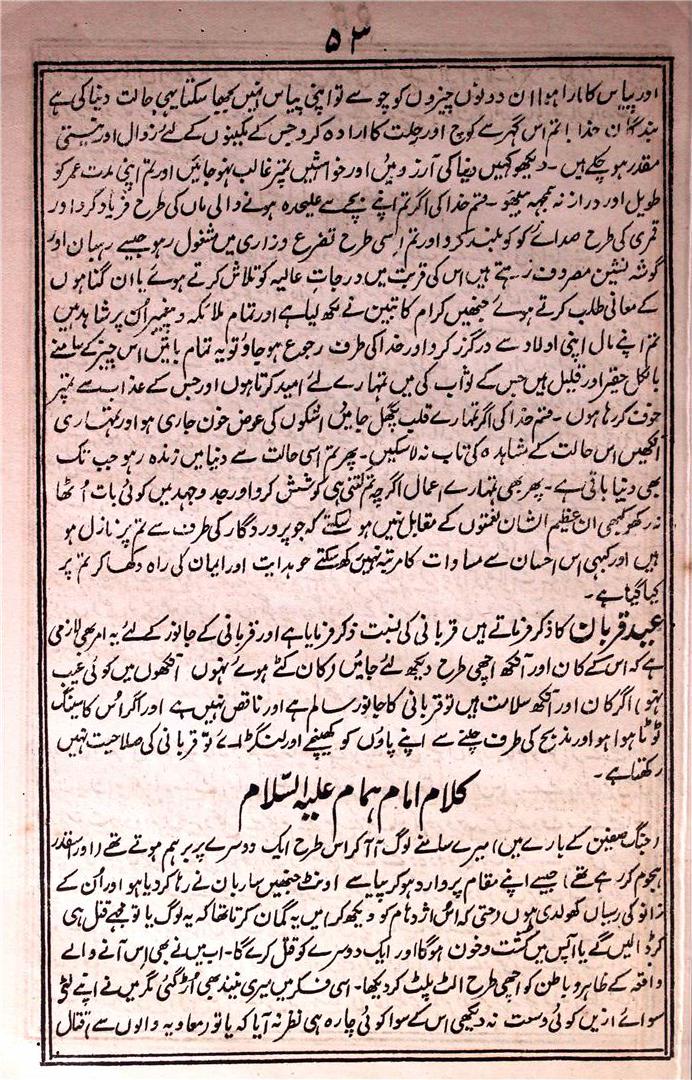 ۵۳
اور پیاس کا مارا ہوا ان دونوں چیزوں کو چوسے تو اپنی پیاس نہیں بجھا سکتا یہی حالت دنیا کی ہے
بندگان خدا! تم اس گھر سے کوچ اور رحلت کا ارادہ کرو جس کے مکینوں کے لئے زوال اور نیستی
مقدر ہو چکے ہیں۔ دیکھو کہیں دنیا کی آرزوئیں اور خواہشیں تمپر غالب نہو جائیں اور تم اپنی مدت عمر کو
طویل اور دراز نہ سمجھ بیٹھو۔ قسم خدا کی اگر تم اپنے بچے سے علیحدہ ہونے والی ماں کی طرح فریاد کرو اور
قمری کی طرح صدائے کو کو بلند کرو اور تم اسی طرح تضرع وزاری میں مشغول رہو جیسے رہبان اور
گوشہ نشین مصروف رہتے ہیں اس کی قربت میں درجات عالیہ کو تلاش کرتے ہوئے یا ان گناہوں
کے معافی طلب کرتے ہوئے جنھیں کراماً کاتبین نے لکھ لیا ہے اور تمام ملائکہ و پیغمبر اُن پر شاہد ہیں
تم اپنے مال اپنی اولاد سے درگزر کرو اور خدا کی طرف رجوع ہو جاؤ تو یہ تمام باتیں اس چیز کے سامنے
بالکل حقیر اور قلیل ہیں جس کے ثواب کی میں تمہارے لئے امید کرتا ہوں اور جس کے عذاب سے تمپر
خوف کر رہا ہوں۔ قسم خدا کی اگر تمہارے قلب پگھل جائیں اشکوں کی عوض خون جاری ہو اور تمہاری
آنکھیں اس حالت کے مشاہدہ کی تاب نہ لا سکیں۔ پھر تم اسی حالت سے دنیا میں زندہ رہو جب تک
بھی دنیا باقی ہے۔ پھر بھی تمہارے اعمال اگرچہ تم کتنی ہی کوشش کرو اور جد و جہد میں کوئی بات اُٹھا
نہ رکھو کبھی ان عظیم الشان نعمتوں کے مقابل نہیں ہو سکتے کہ جو پروردگار کی طرف سے تم پر نازل ہو
ہیں اور کبھی اس احسان سے مساوات کا مرتبہ نہیں رکھ سکتے جو ہدایت اور ایمان کی راہ دکھا کر تم پر
کیا گیا ہے۔
عید قربان کا ذکر فرماتے ہیں قربانی کی نسبت ذکر فرمایا ہے اور قربانی کے جانور کے لئے یہ امر بھی لازمی
ہے کہ اس کے کان اور آنکھ اچھی طرح دیکھ لئے جائیں (کان کٹے ہوئے نہوں آنکھوں میں کوئی عیب
نہو) اگر کان اور آنکھ سلامت ہیں تو قربانی کا جانور سالم ہے اور ناقص نہیں ہے اور اگر اُس کا سینگ
ٹوٹا ہوا ہو اور مذبح کی طرف چلنے سے اپنے پاؤں کو کھینچے اور لنگڑائے تو قربانی کی صلاحیت نہیں
رکھتا ہے۔
کلام امام ہمام علیہ السّلام
(جنگ صفین کے بارے میں) میرے سامنے لوگ آ آ کر اس طرح ایک دوسرے پر برہم ہوتے تھے (اور اسقدر
ہجوم کر رہے تھے) جیسے اپنے مقام پر وارد ہو کر پیاسے اونٹ جنھیں ساربان نے رہا کر دیا ہو اور اُن کے
زانو کی رسیاں کھولدی ہوں (حتی کہ اس اژدہام کو دیکھ کر) میں یہ گمان کرتا تھا کہ یہ لوگ یا تو مجھے قتل ہی
کر ڈالیں گے یا آپس میں کشت و خون ہوگا اور ایک دوسرے کو قتل کرے گا۔ اب میں نے بھی اِس آنے والے
واقعہ کے ظاہر و باطن کو اچھی طرح الٹ پلٹ کر دیکھا۔ اسی فکر میں میری نیند بھی اُڑ گئی مگر میں نے اپنے لئے
سوائے ازیں کوئی وسعت نہ دیکھی اس کے سوا کوئی چارہ ہی نظر نہ آیا کہ یا تو (معاویہ والوں سے) قتال